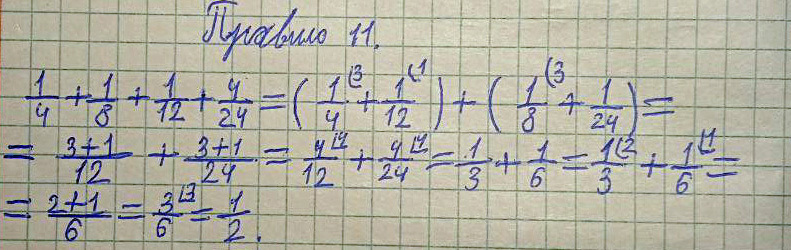 Правило 11.
1/4 + 1/8 + 1/12 + 4/24 = ( 1/4 (3 + 1/12 (1 ) + ( 1/8 (3 + 1/24 ) =
= 3+1/12 + 3+1/24 = 4/12 (4 + 4/24 (4 = 1/3 + 1/6 = 1/3 (2 + 1/6 (1 =
= 2+1/6 = 3/6 (3 = 1/2.